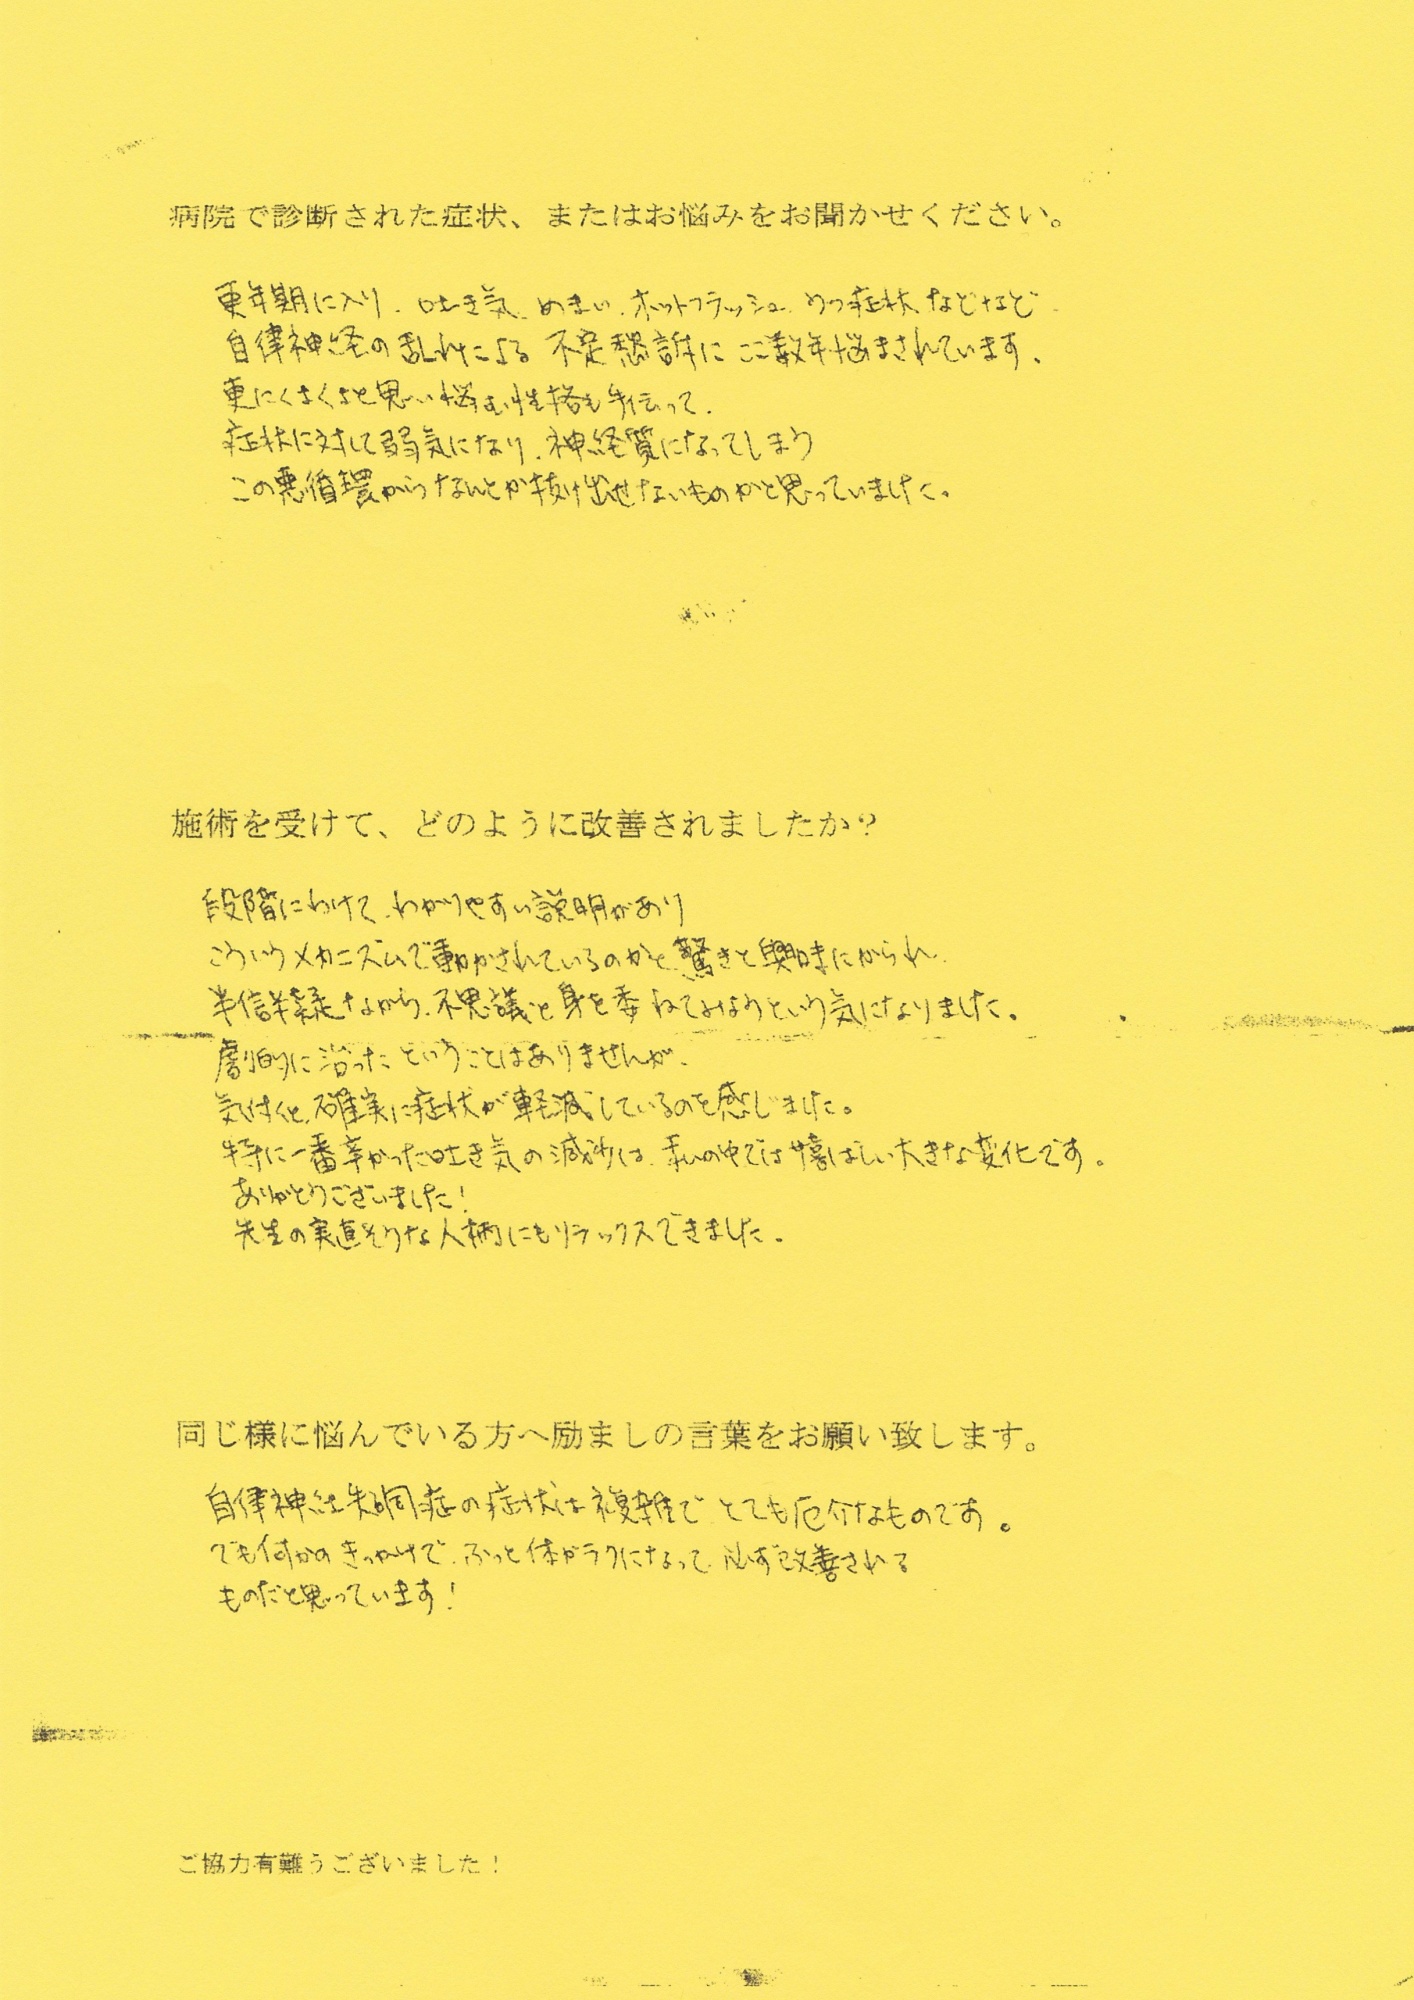 病院で診断された症状、またはお悩みをお聞かせください。
更年期に入り、吐き気、めまい、ホットフラッシュ、うつ症状、などなど
自律神経の乱れによる 不定愁訴に ここ数年悩まされています。
更にくよくよと思い悩む性格も手伝って、
症状に対して弱気になり、神経質になってしまう
この悪循環からなんとか抜け出せないものかと思っていました。
施術を受けて、どのように改善されましたか?
段階にわけて、わかりやすい説明があり
こういうメカニズムで動かされているのかと、驚きと興味にかられ、
半信半疑ながら、不思議と身を委ねてみようという気になりました。
劇的に治ったということはありませんが、
気付くと、確実に症状が軽減しているのを感じました。
特に一番辛かった吐き気の減少は、私の中では嬉ばしい大きな変化です。
ありがとうございました!
先生の実直そうな人柄にもリラックスできました。
同じ様に悩んでいる方へ励ましの言葉をお願い致します。
自律神経失調症の症状は複雑で とても厄介なものです。
でも何かのきっかけで、ふっと体がラクになって、必ず改善される
ものだと思っています!
ご協力有難うございました!